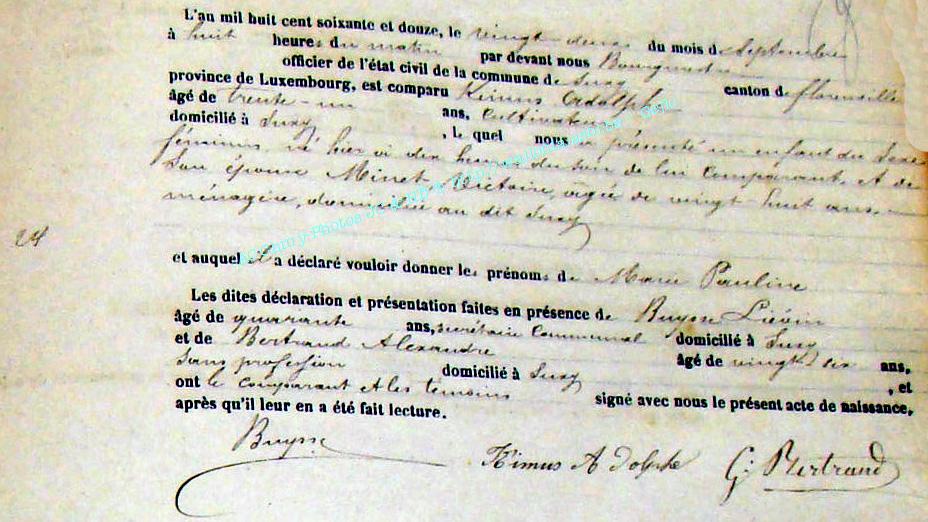 L'an mil huit cent soixante et douze, le vingt deux du mois de Septembre
à huit heures du matin par devant nous Bourgmestre
officier de l'état civil de la commune de Suxy canton de florenville
province de Luxembourg, est comparu Kimus Adolphe
âgé de trente-un ans, Cultivateur
domicilié à Suxy, le quel nous a présenté un enfant du Sexe
féminin, né hier à dix heures du soir de lui Comparant, et de
Son épouse Minet Victoire, âgée de vingt huit ans,
ménagère, domiciliée au dit Suxy
24
et auquel il a déclaré vouloir donner les prénoms de Marie Pauline
Les dites déclaration et présentation faites en présence de Buysse Liévin
âgé de quarante ans, secrétaire Communal domicilié à Suxy
et de Bertrand Alexandre âgé de vingt six ans,
Sans profession domicilié à Suxy, et
ont le comparant et les témoins signé avec nous le présent acte de naissance,
après qu'il leur en a été fait lecture.
Buysse Kimus Adolphe G. Bertrand